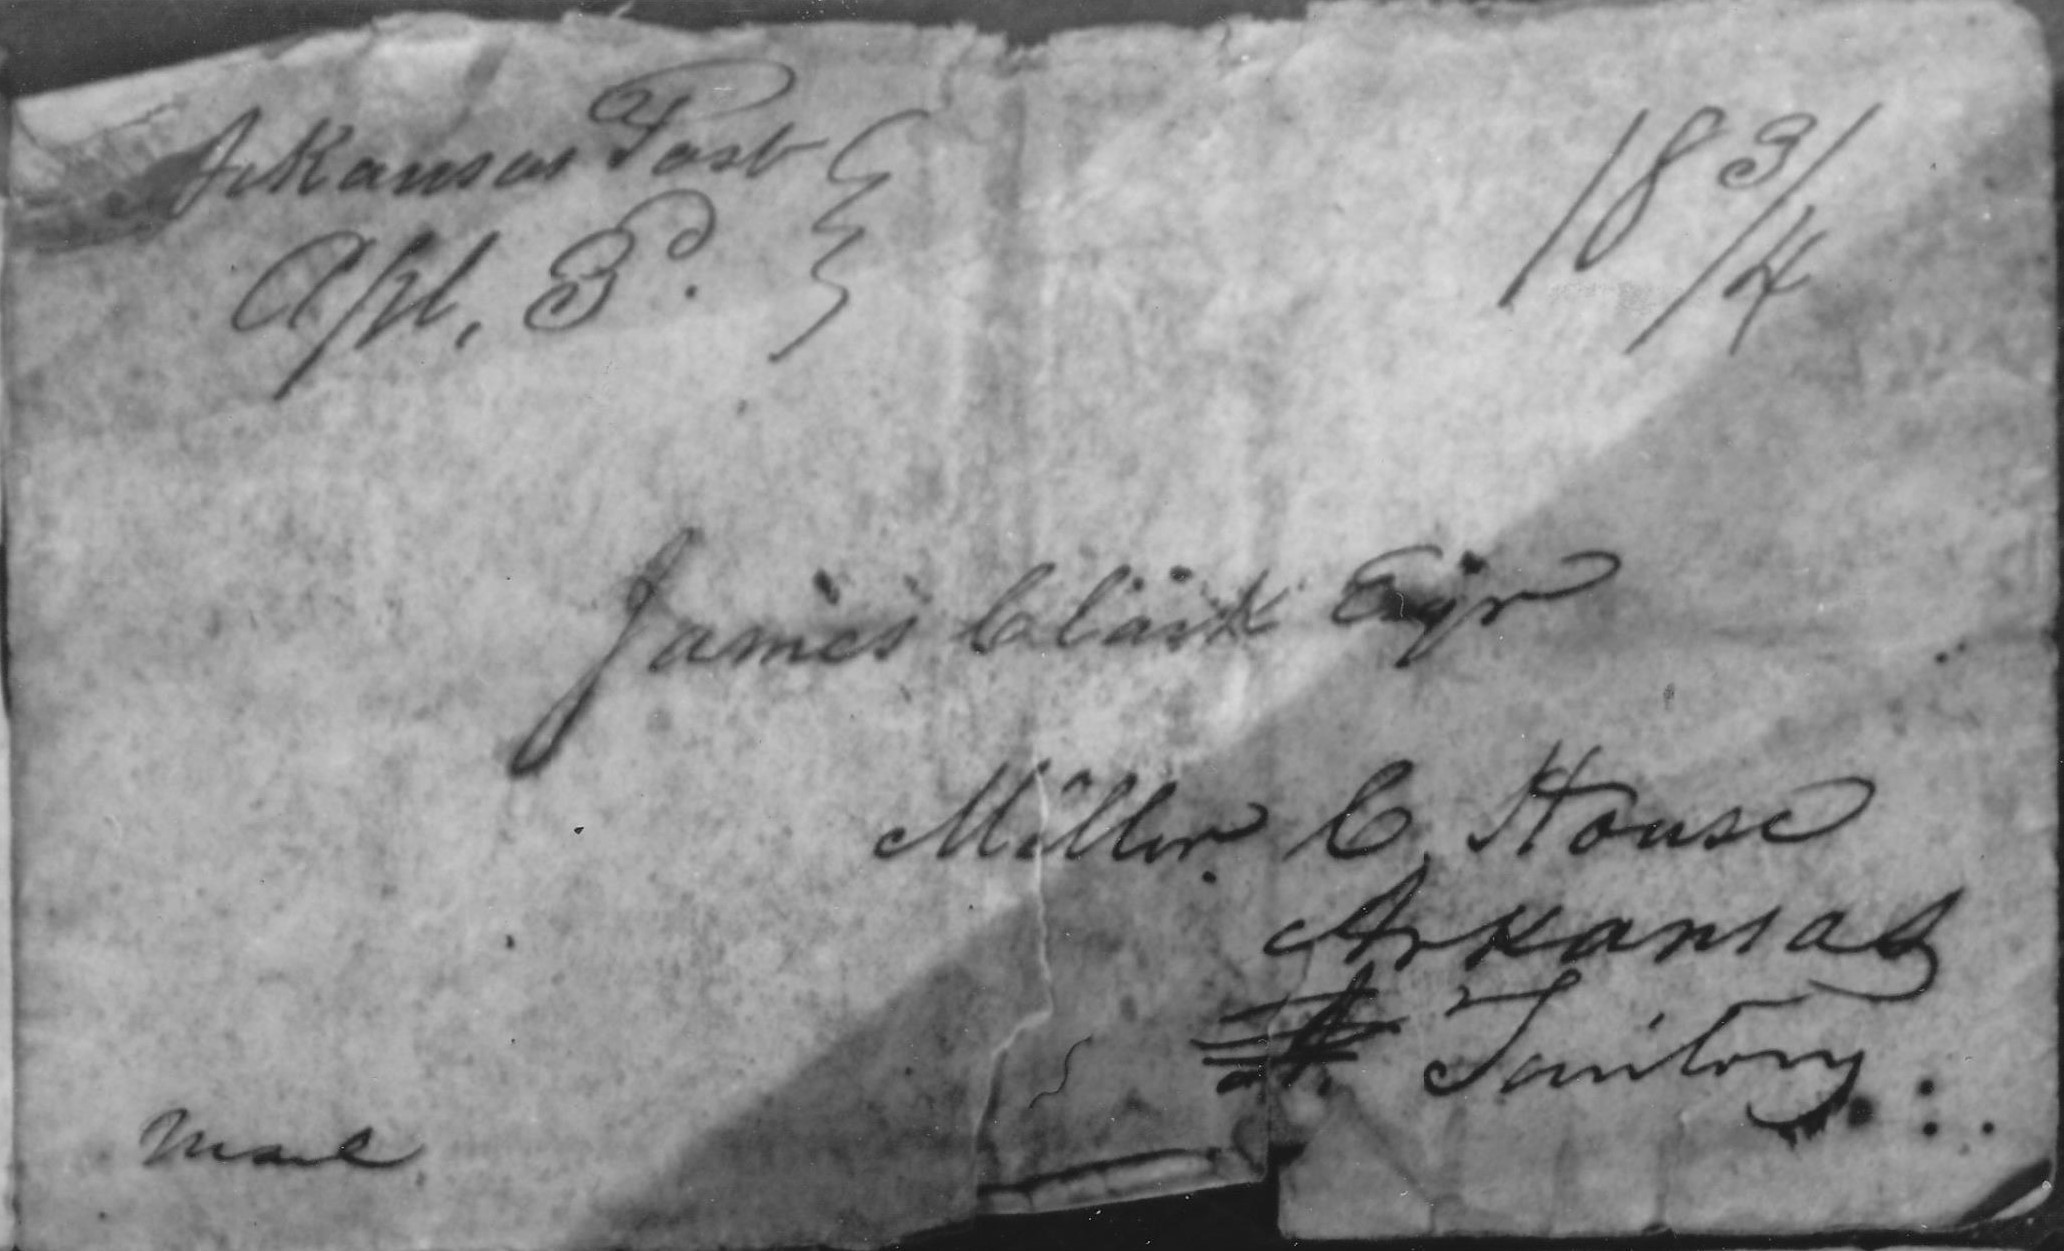 Arkansas Post
Apl, 3d.
18 3/4
James Clark Esqr
Miller C. House
Arkansas
Territory
Mail